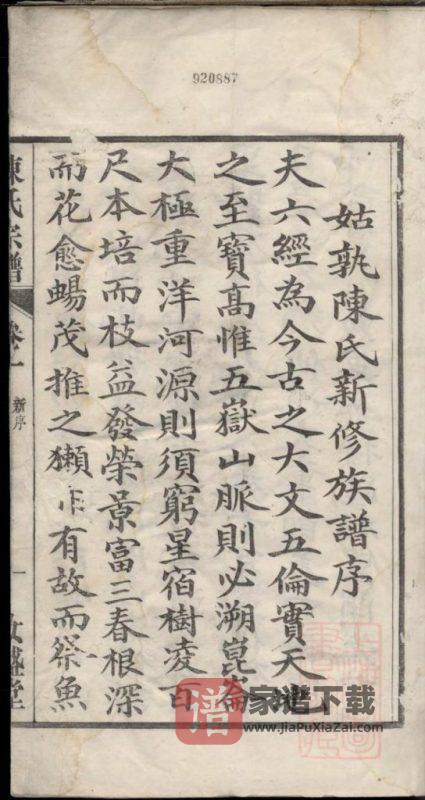 920887
姑孰陳氏新修族譜序
夫六經為今古之大文五倫實天地
之至寶高惟五嶽山脈則必溯崑崙
大極重洋河源則須窮星宿樹凌百
尺本培而枝益發榮景富三春根深
而花愈暢茂推之獺非有故而祭魚
陳氏宗譜
卷一
新序
一
譜
家谱下载
www.JiaPuXiaZai.com